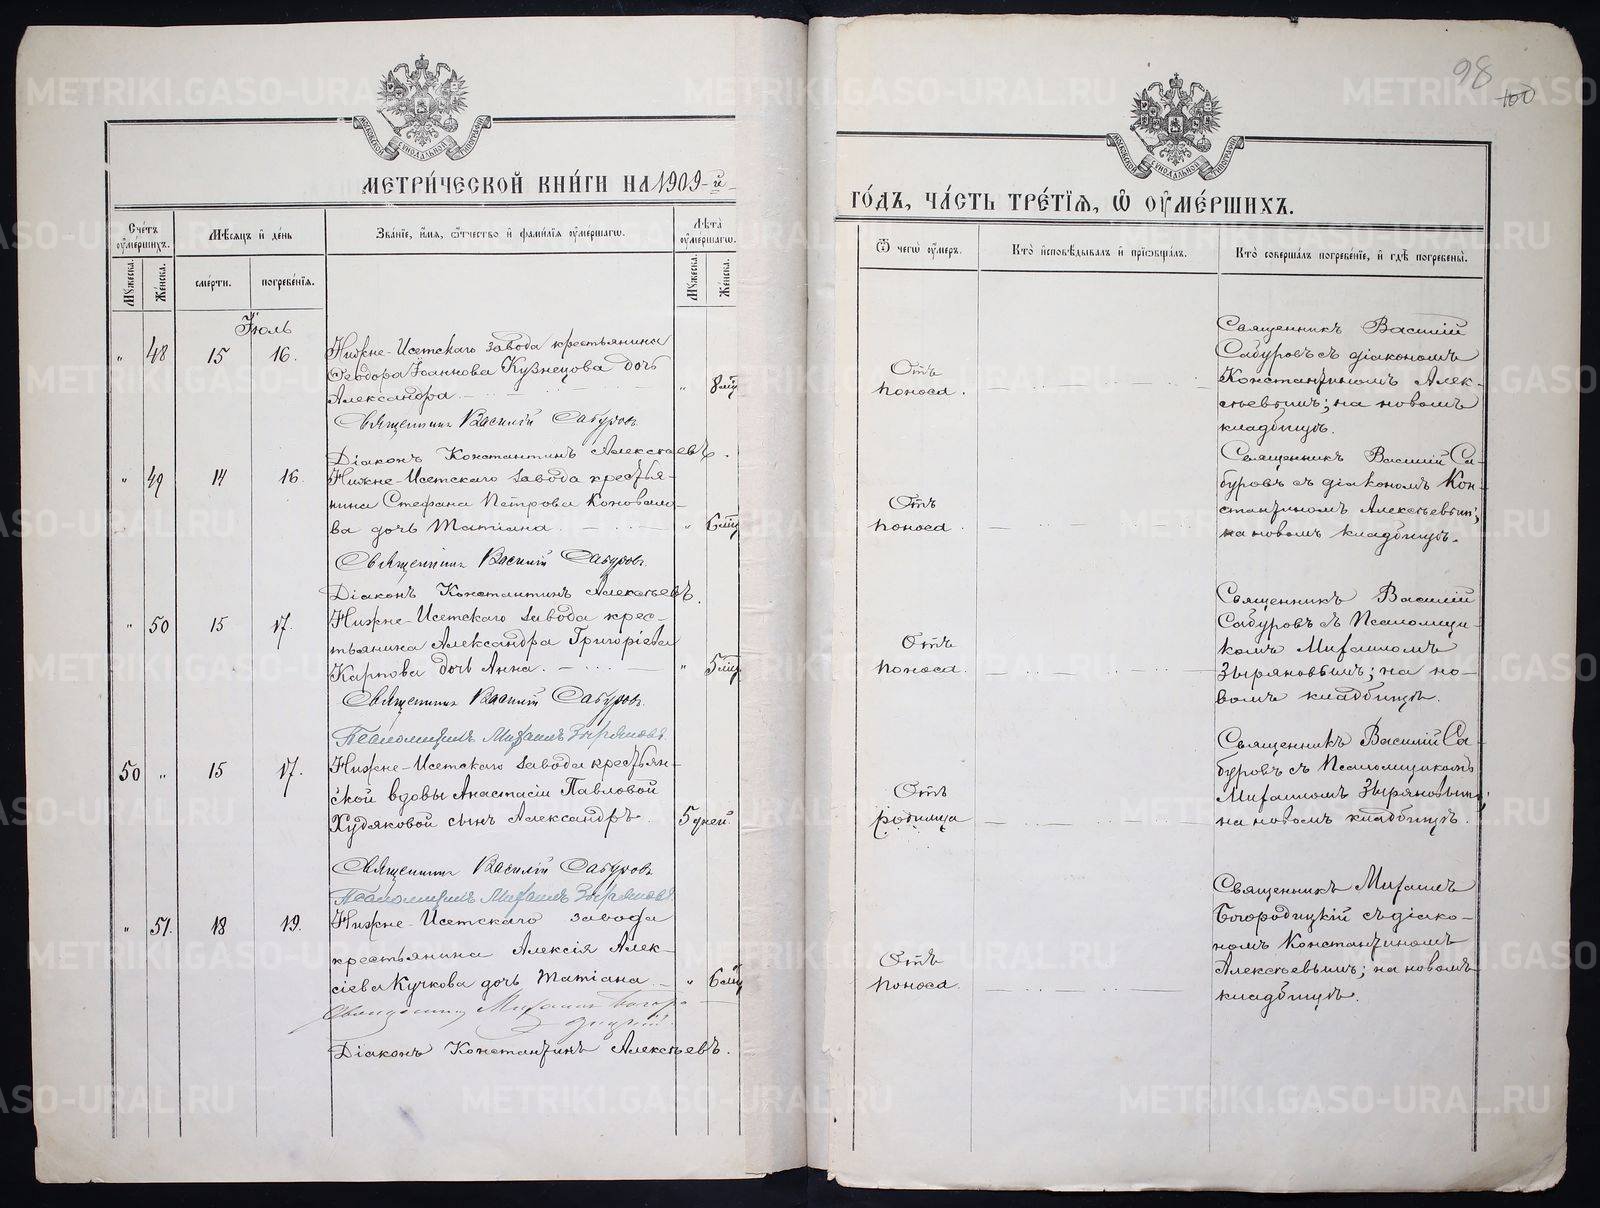 98
100
МОСКОВСКОЙ СѴНОДАЛЬНОЙ ТИПОГРАФІИ
МОСКОВСКОЙ СѴНОДАЛЬНОЙ ТИПОГРАФІИ
МЕТРИ́ЧЕСКОЙ КНИ́ГИ НА 1909-й
ГО́ДЪ, ЧА́СТЬ ТРЕ́ТІѦ, Ѽ ОУМЕ́РШИХЪ.
Сче́тъ оумершихъ.
Мужеска.
Женска.
Мѣсяцъ и день
смерти.
погребенія.
Званіе, имя, отчество и фамилія оумершагѡ.
Лѣта оумершагѡ.
Мужеска.
Женска.
Ѿ чегѡ оумеръ.
Кто исповѣдывалъ и пріобщалъ.
Кто совершалъ погребеніе, и гдѣ погребены.
Іюль
" 48 15 16.
Нижне-Исетскаго завода крестьянина
Ѳеодора Іоаннова Кузнецова дочь
Александра.
" 8 мц
Священникъ Василій Сабуровъ
Діаконъ Константинъ Алексѣевъ.
Отъ
поноса.
Священникъ Василій
Сабуровъ съ діакономъ
Константиномъ Алек-
сѣевымъ; на новомъ
кладбищѣ.
" 49 14 16.
Нижне-Исетскаго завода крестья-
нина Стефана Петрова Коновало-
ва дочь Татіана.
" 6 мц
Священникъ Василій Сабуровъ.
Діаконъ Константинъ Алексѣевъ.
Отъ
поноса.
Священникъ Василій Са-
буровъ съ діакономъ Кон-
стантиномъ Алексѣевым;
на новомъ кладбищѣ.
" 50 15 17.
Нижне-Исетскаго завода крес-
тьянина Александра Григоріева
Карпова дочь Анна.
" 5 мц
Священникъ Василій Сабуровъ.
Псаломщикъ Михаилъ Зыряновъ
Отъ
поноса.
Священникъ Василій
Сабуровъ съ Псаломщи-
комъ Михаиломъ
Зыряновымъ; на но-
вомъ кладбищѣ.
50 " 15 17.
Нижне-Исетскаго завода крестьян-
ской вдовы Анастасіи Павловой
Худяковой сынъ Александръ.
5 дней.
Священникъ Василій Сабуровъ
Псаломщикъ Михаилъ Зыряновъ
Отъ
родимца
Священникъ Василій Са-
буровъ съ Псаломщикомъ
Михаиломъ Зыряновымъ;
на новомъ кладбищѣ.
" 51. 18 19.
Нижне-Исетскаго завода
крестьянина Алексія Алек-
сіева Кучкова дочь Татіана
" 6 мц
Священникъ Михаилъ Богоро-
дицкій.
Діаконъ Константинъ Алексѣевъ.
Отъ
поноса.
Священникъ Михаилъ
Богородицкій съ діако-
номъ Константиномъ
Алексѣевымъ; на новомъ
кладбищѣ.
METRIKI.GASO-URAL.RU